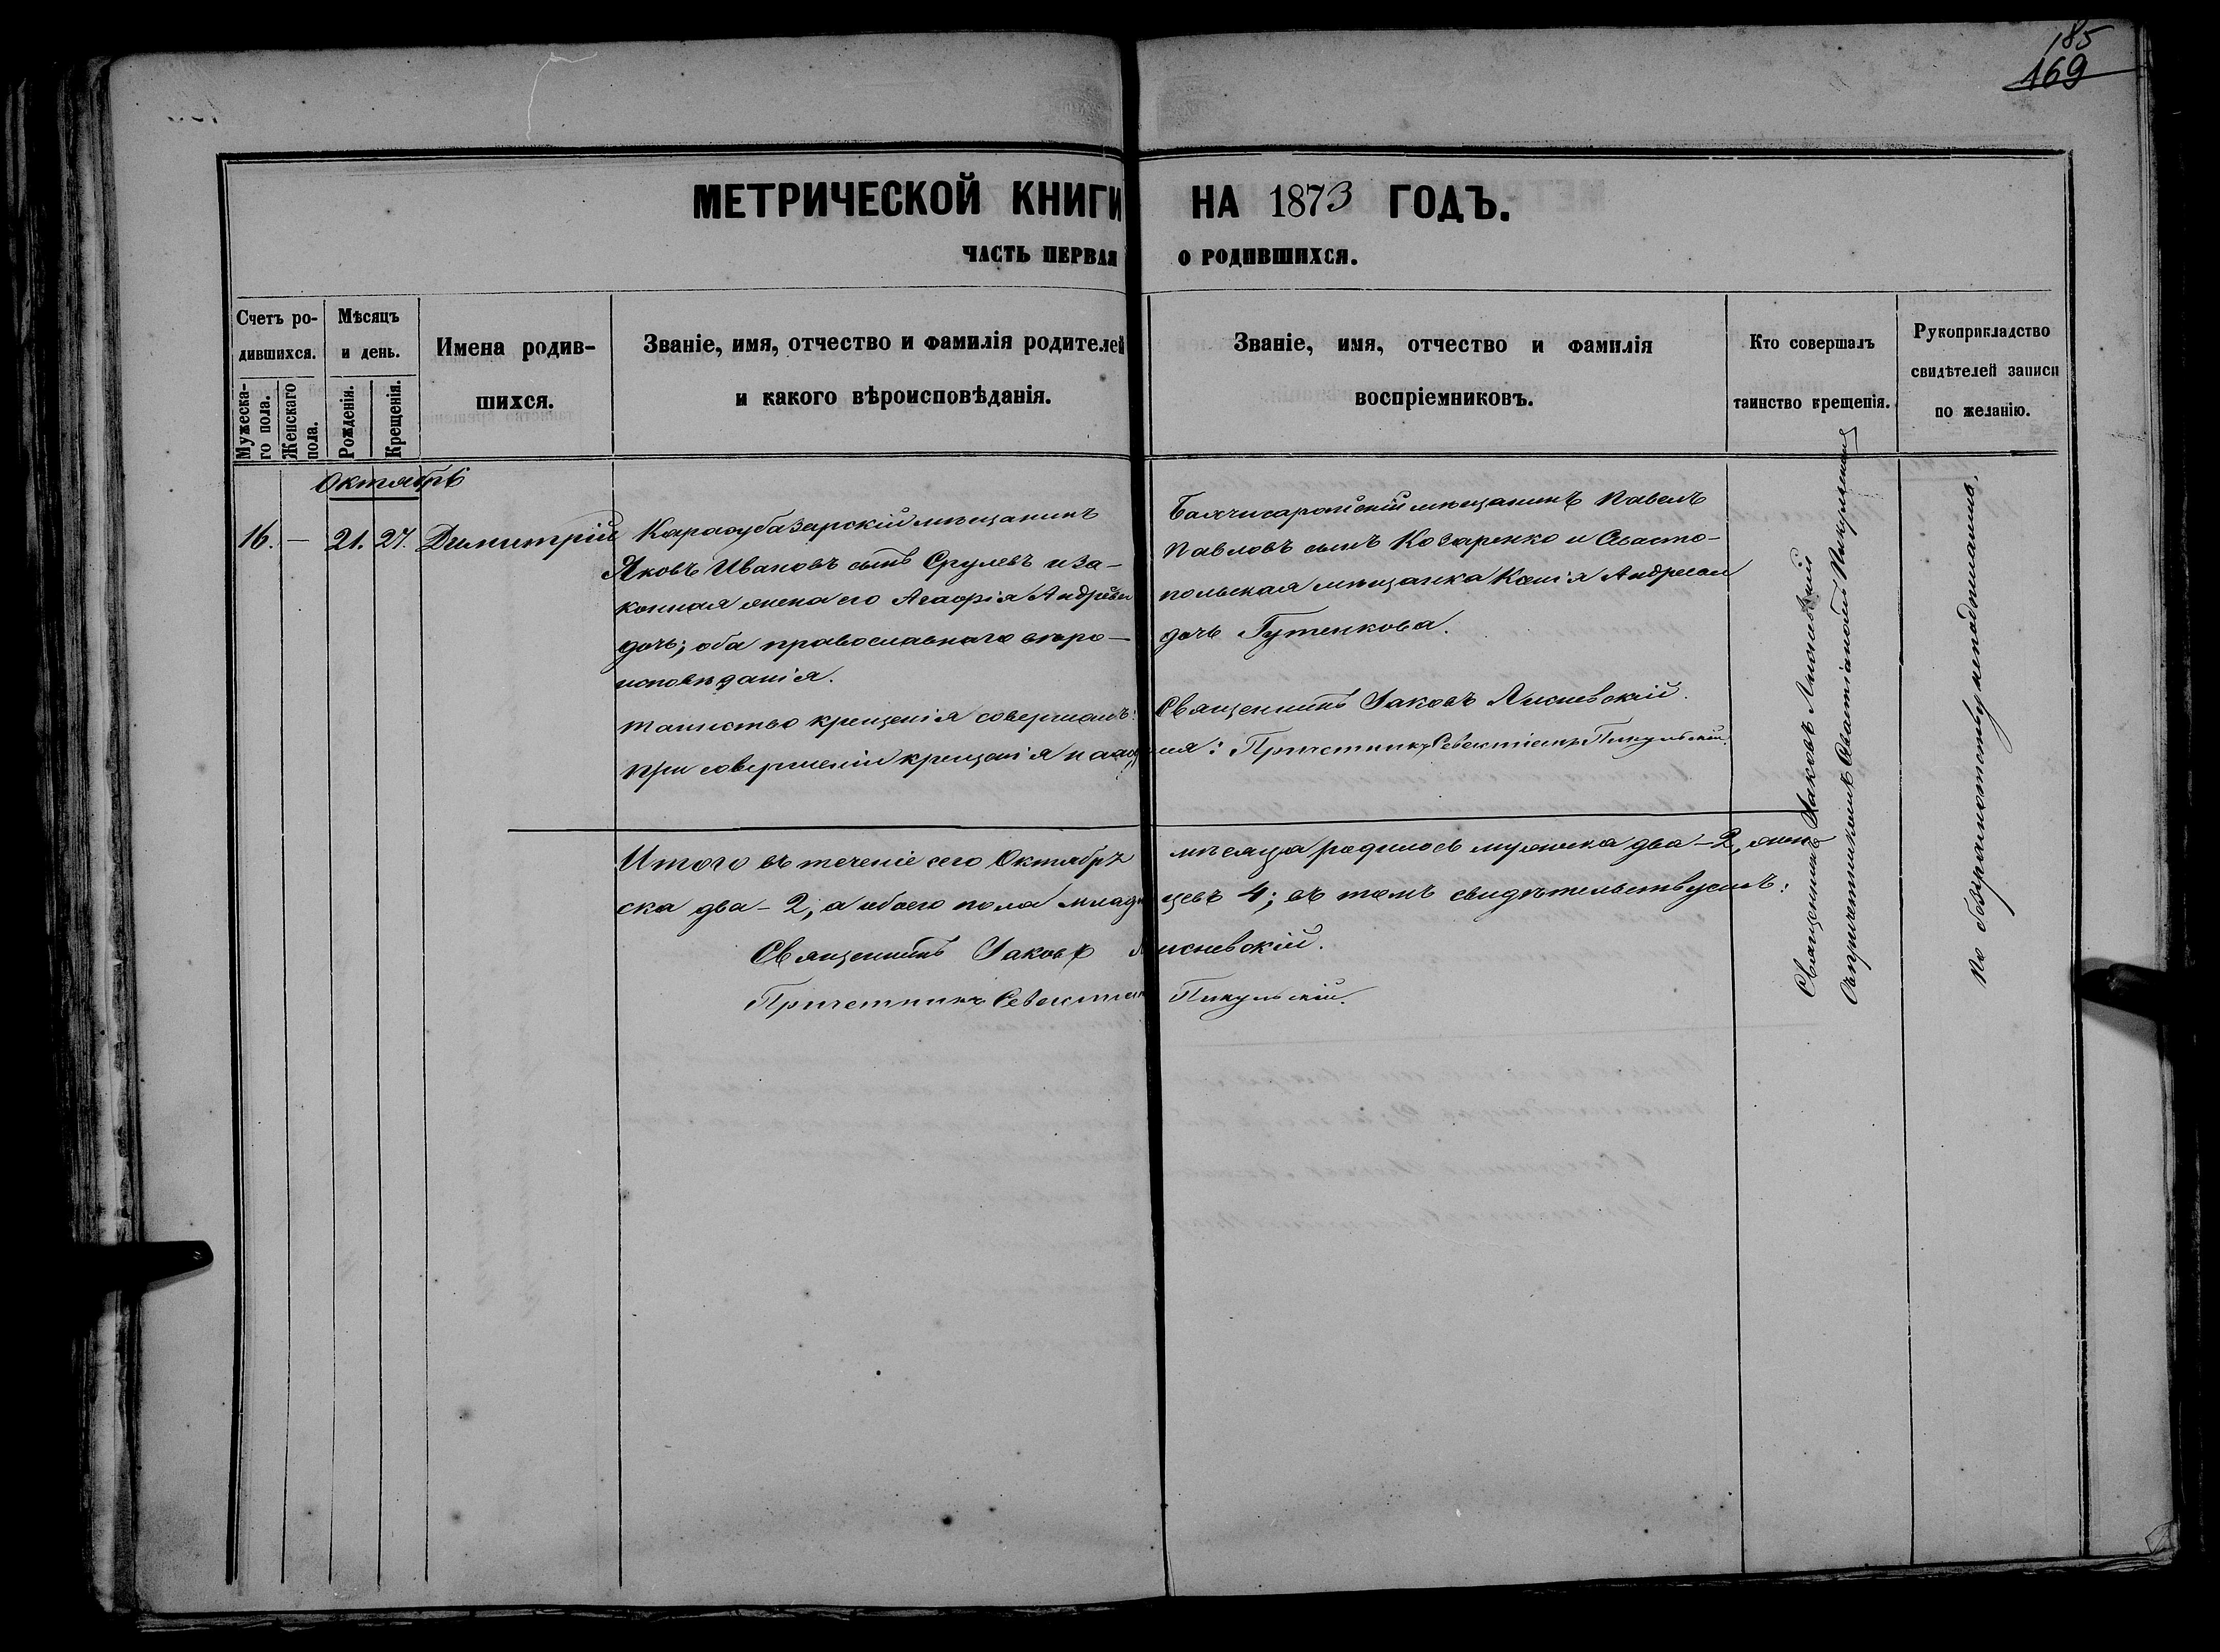 185
169
МЕТРИЧЕСКОЙ КНИГИ НА 1873 ГОДЪ.
ЧАСТЬ ПЕРВАЯ О РОДИВШИХСЯ.
Счетъ ро-
дившихся.
Мужеска-
го пола.
Женскаго
пола.
Мѣсяцъ
и день.
Рожденія.
Крещенія.
Имена родив-
шихся.
Званіе, имя, отчество и фамилія родителей
и какого вѣроисповѣданія.
Званіе, имя, отчество и фамилія
воспріемниковъ.
Кто совершалъ
таинство крещенія.
Рукоприкладство
свидѣтелей записи
по желанію.
Октябрь
16. — 21. 27. Димитрій
Карасубазарскій мѣщанинъ
Яковъ Ивановъ сынъ Срулевъ и за-
конная жена его Агафія Андреева
дочь; оба православнаго вѣро-
исповѣданія.
Бахчисарайскій мѣщанинъ Павелъ
Павловъ сынъ Козаренко и Севасто-
польская мѣщанка Андреева
дочь Гутенкова.
Таинство крещенія совершалъ: Священникъ Іаковъ Лисневскій.
При совершеніи крещенія находился: Причетникъ Севастіанъ Пикульскій.
Священникъ Іаковъ Лисневскій
съ причетникомъ Севастіаномъ Пикульскимъ
По безграмотству неподписались.
Итого въ теченіе сего Октября мѣсяца родилось мужеска два - 2, жен-
ска два - 2, а обоего пола младенцевъ 4; въ томъ свидѣтельствуемъ:
Священникъ Іаковъ Лисневскій.
Причетникъ Севастіанъ Пикульскій.